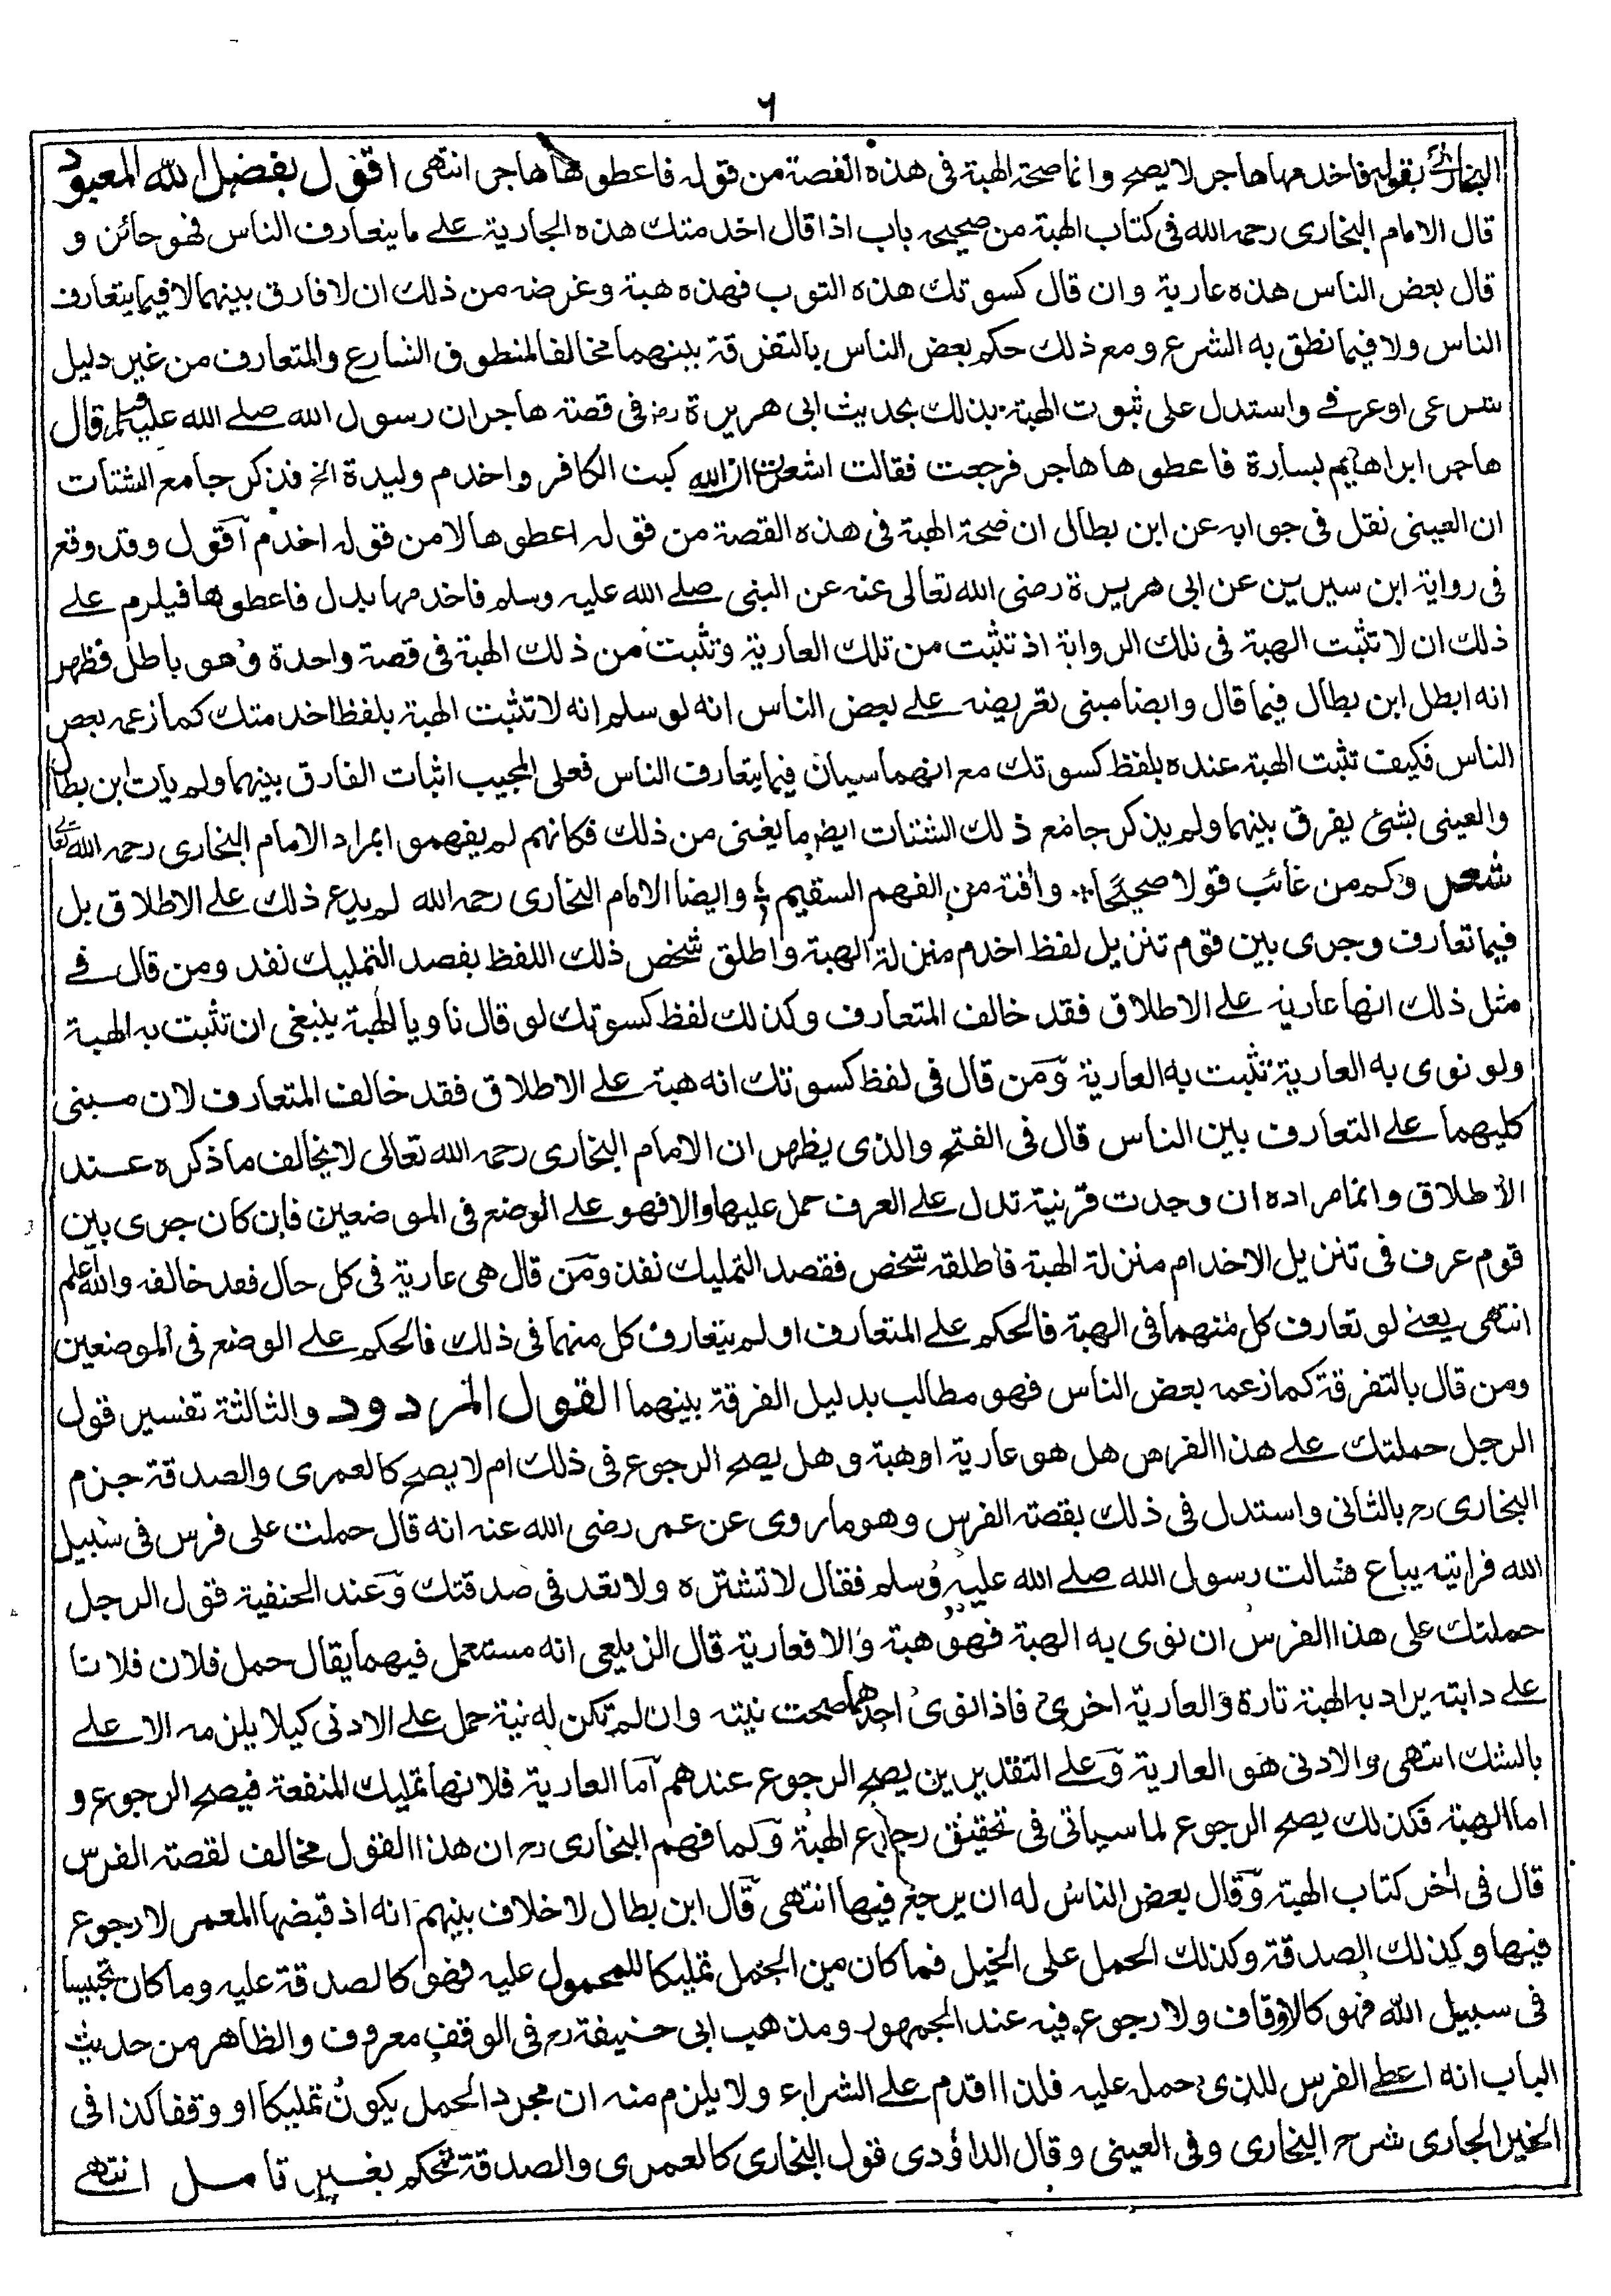 ٦
البخاري بقوله فاخدمها هاجر لا يصح وانما صحة الهبة في هذه القصة من قوله فاعطوها هاجر انتهى اقول بفضل الله المعبود
قال الامام البخارى رحمه الله فى كتاب الهبة من صحيحه باب اذا قال اخدمتك هذه الجارية على ما يتعارف الناس فهو جائز و
قال بعض الناس هذه عارية وان قال كسوتك هذه الثوب فهذه هبة وغرضه من ذلك ان لا فارق بينهما لا فيما يتعارف
الناس ولا فيما نطق به الشرع ومع ذلك حكم بعض الناس بالتفرقة بينهما مخالفا لمنطوق الشارع والمتعارف من غير دليل
شرعى او عرفى واستدل على ثبوت الهبة بذلك بحديث ابى هريرة رض فى قصة هاجر ان رسول الله صلى الله عليه وسلم قال
هاجر ابراهيم بسارة فاعطوها هاجر فرجعت فقالت اشعرت ان الله كبت الكافر واخدم وليدة الخ فذكر جامع الشتات
ان العينى نقل فى جوابه عن ابن بطال ان صحة الهبة فى هذه القصة من قوله اعطوها لا من قوله اخدم اقول وقد وقع
فى رواية ابن سيرين عن ابى هريرة رضى الله تعالى عنه عن النبى صلى الله عليه وسلم فاخدمها بدل فاعطوها فيلزم على
ذلك ان لا تثبت الهبة فى تلك الرواية اذ تثبت من تلك العارية وتثبت من ذلك الهبة فى قصة واحدة وهو باطل فظهر
انه ابطل ابن بطال فيما قال وايضا مبنى تعريضه على بعض الناس انه لو سلم انه لا تثبت الهبة بلفظ اخدمتك كما زعمه بعض
الناس فكيف تثبت الهبة عنده بلفظ كسوتك مع انهما سيان فيما يتعارف الناس فعلى المجيب اثبات الفارق بينهما ولم يات ابن بطال
والعينى بشئ يفرق بينهما ولم يذكر جامع ذلك الشتات ايض ما يغنى من ذلك فكانهم لم يفهموا بمراد الامام البخارى رحمه الله تعالى
شعر وكم من غائب قولا صحيحا ؞ وافته من الفهم السقيم ؞ وايضا الامام البخارى رحمه الله لم يدع ذلك على الاطلاق بل
فيما تعارف وجرى بين قوم تنزيل لفظ اخدم منزلة الهبة واطلق شخص ذلك اللفظ بقصد التمليك نفذ ومن قال فى
مثل ذلك انها عارية على الاطلاق فقد خالف المتعارف وكذلك لفظ كسوتك لو قال ناويا الهبة ينبغى ان تثبت به الهبة
ولو نوى به العارية تثبت به العارية ومن قال فى لفظ كسوتك انه هبة على الاطلاق فقد خالف المتعارف لان مبنى
كليهما على التعارف بين الناس قال فى الفتح والذى يظهر ان الامام البخارى رحمه الله تعالى لا يخالف ما ذكره عند
الاطلاق وانما مراده ان وجدت قرنية تدل على العرف حمل عليها والا فهو على الوضع فى الموضعين فان كان جرى بين
قوم عرف فى تنزيل الاخدام منزلة الهبة فاطلقه شخص فقصد التمليك نفذ ومن قال هى عارية فى كل حال فقد خالفه والله اعلم
انتهى يعنى لو تعارف كل منهما فى الهبة فالحكم على المتعارف او لم يتعارف كل منهما فى ذلك فالحكم على الوضع فى الموضعين
ومن قال بالتفرقة كما زعمه بعض الناس فهو مطالب بدليل الفرقة بينهما القول المردود والثالثة تفسير قول
الرجل حملتك على هذا الفرس هل هو عارية او هبة وهل يصح الرجوع فى ذلك ام لا يصح كالعمرى والصدقة جزم
البخارى رح بالثانى واستدل فى ذلك بقصة الفرس وهو ما روى عن عمر رضى الله عنه انه قال حملت على فرس فى سبيل
الله فرايته يباع فسالت رسول الله صلى الله عليه وسلم فقال لا تشتره ولا تعد فى صدقتك وعند الحنفية قول الرجل
حملتك على هذا الفرس ان نوى به الهبة فهو هبة والا فعارية قال الزيلعى انه مستعمل فيهما يقال حمل فلان فلانا
على دابته يراد به الهبة تارة والعارية اخرى فاذا نوى احدهما صحت نيته وان لم تكن له نية حمل على الادنى كيلا يلزمه الاعلى
بالشك انتهى والادنى هو العارية وعلى التقديرين يصح الرجوع عندهم اما العارية فلانها تمليك المنفعة فيصح الرجوع و
اما الهبة فكذلك يصح الرجوع لما سياتى فى تحقيق رجوع الهبة ولما فهم البخارى رح ان هذا القول مخالف لقصة الفرس
قال فى اخر كتاب الهبة وقال بعض الناس له ان يرجع فيها انتهى قال ابن بطال لا خلاف بينهم انه اذ قبضها المعمر لا رجوع
فيها وكذلك الصدقة وكذلك الحمل على الخيل فما كان من الحمل تمليكا للمحمول عليه فهو كالصدقة عليه وما كان تحبيسا
فى سبيل الله فهو كالاوقاف ولا رجوع فيه عند الجمهور ومذهب ابى حنيفة رح فى الوقف معروف والظاهر من حديث
الباب انه اعطى الفرس للذى حمله عليه فلذا اقدم على الشراء ولا يلزم منه ان مجرد الحمل يكون تمليكا او وقفا كذا فى
الخير الجارى شرح البخارى وفى العينى وقال الداؤدى قول البخارى كالعمرى والصدقة تحكم بغير تامل انتهى